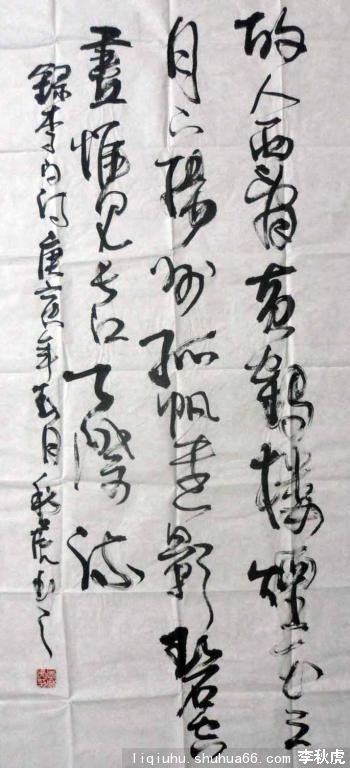 故人西辭黄鶴樓煙花三
月下揚州孤帆遠影碧空
盡惟見長江天際流
錄李白詩庚寅年月秋虎書之
liqiuhu.shuhua66.com 李秋虎